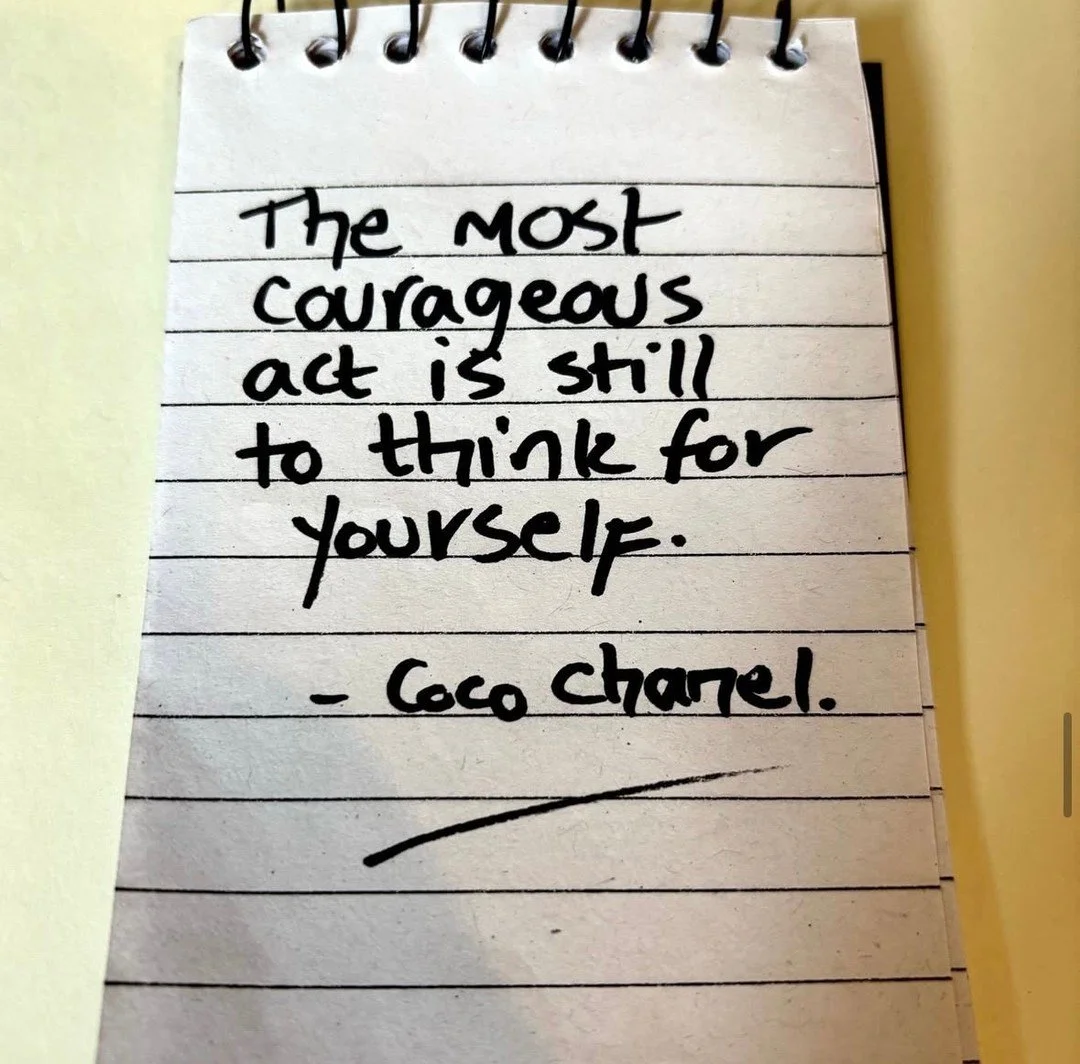 The most
courageous
act is still
to think for
yourself.
- Coco Chanel.